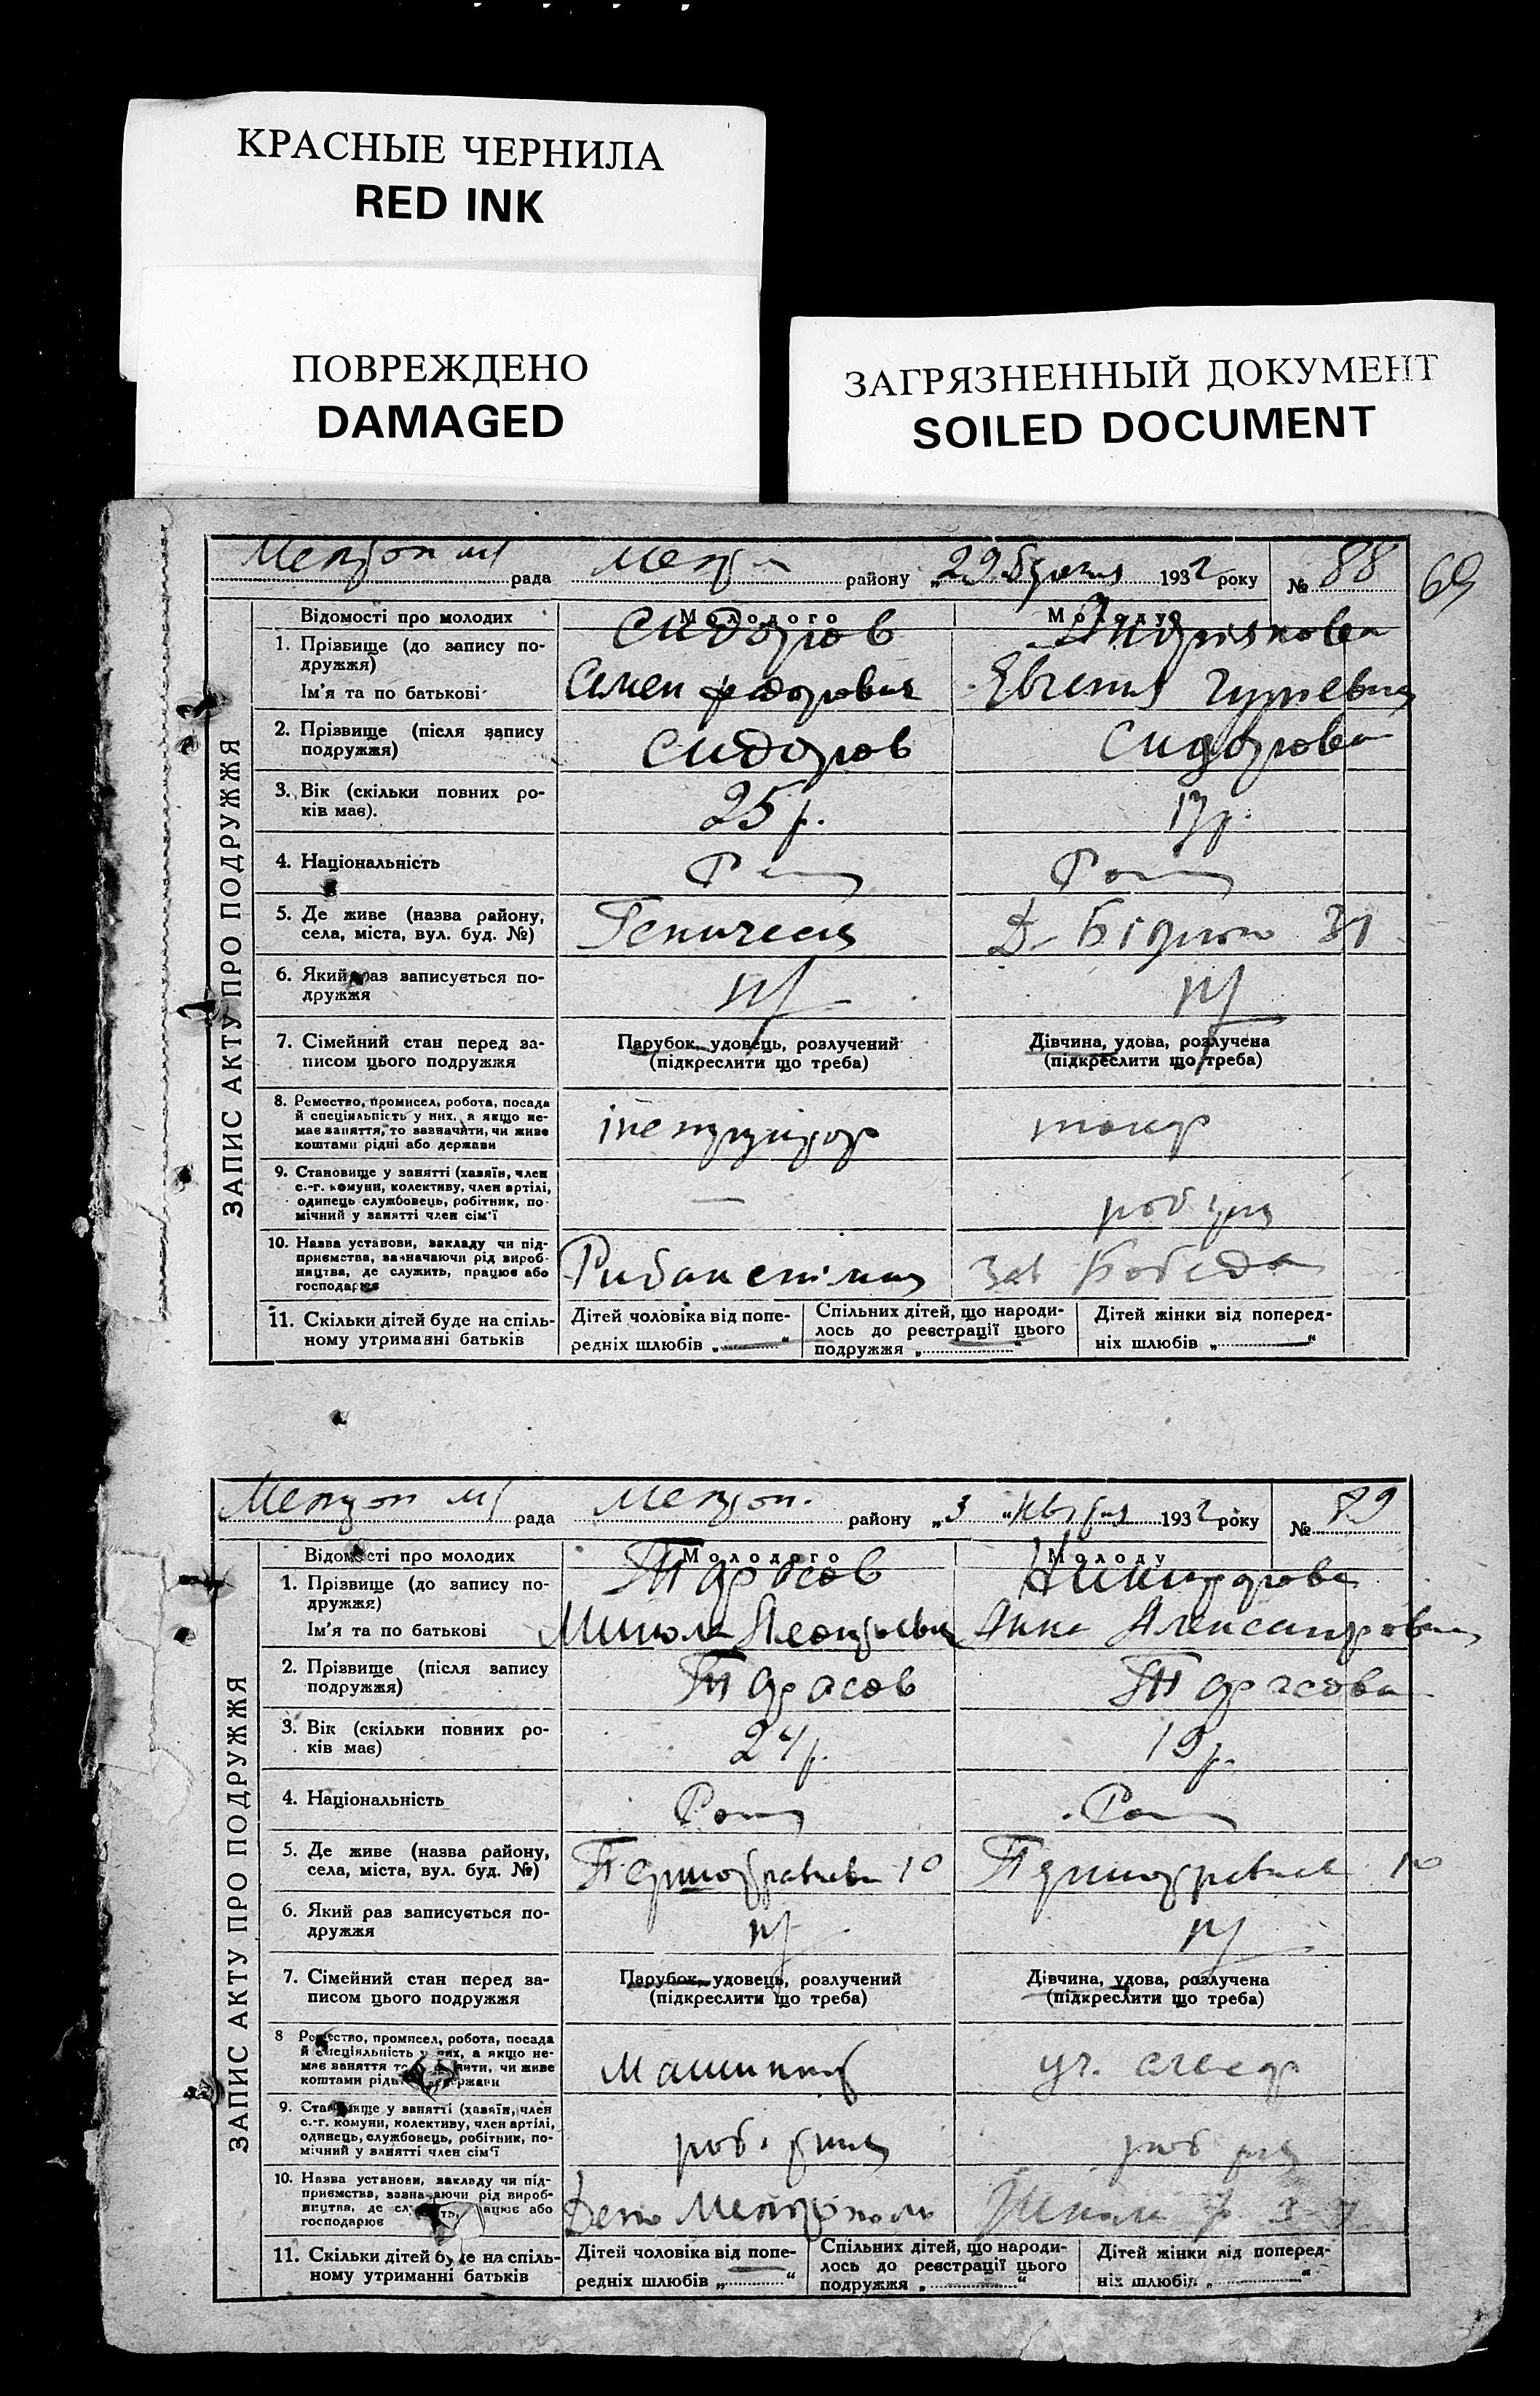 КРАСНЫЕ ЧЕРНИЛА
RED INK
ПОВРЕЖДЕНО
DAMAGED
ЗАГРЯЗНЕННЫЙ ДОКУМЕНТ
SOILED DOCUMENT
рада району „29 1932 року № 88
69
ЗАПИС АКТУ ПРО ПОДРУЖЖЯ
Відомості про молодих Молодого Молодує
1. Прізвище (до запису по-
дружжя) Сидоров
Ім'я та по батькові Семен Федорович Евгения
2. Прізвище (після запису
подружжя) Сидоров Сидорова
3. Вік (скільки повних ро-
ків має). 25 р. 17 р.
4. Національність
5. Де живе (назва району,
села, міста, вул. буд. №) Геническ Д. Бідного 31
6. Який раз записується по-
дружжя
7. Сімейний стан перед за-
писом цього подружжя
Парубок, удовець, розлучений
(підкреслити що треба)
Дівчина, удова, розлучена
(підкреслити що треба)
8. Ремество, промисел, робота, посада
й спеціяльність у них, а якщо не-
має заняття, то зазначити, чи живе
коштами рідні або держави
інструктор токар
9. Становище у занятті (хазяїн, член
с.-г. комуни, колективу, член артілі,
одинець службовець, робітник, по-
мічний у занятті член сім'ї
—
10. Назва установи, закладу чи під-
приємства, зазначаючи рід вироб-
ництва, де служить, працює або
господарює
Зав Победа
11. Скільки дітей буде на спіль-
ному утриманні батьків
Дітей чоловіка від попе-
редніх шлюбів „ — “
Спільних дітей, що народи-
лось до реєстрації цього
подружжя „ — “
Дітей жінки від поперед-
ніх шлюбів „ — “
рада району „3 “ 1932 року № 89
ЗАПИС АКТУ ПРО ПОДРУЖЖЯ
Відомості про молодих Молодого Молоду
1. Прізвище (до запису по-
дружжя) Тарасов Никифорова
Ім'я та по батькові Микола Анна Александровна
2. Прізвище (після запису
подружжя) Тарасов Тарасова
3. Вік (скільки повних ро-
ків має) 24 р. 19 р.
4. Національність
5. Де живе (назва району,
села, міста, вул. буд. №) 10 10
6. Який раз записується по-
дружжя
7. Сімейний стан перед за-
писом цього подружжя
Парубок, удовець, розлучений
(підкреслити що треба)
Дівчина, удова, розлучена
(підкреслити що треба)
8 Ремество, промисел, робота, посада
й спеціяльність у них, а якщо не-
має заняття то чи живе
коштами
Машиніст уч. слесар
9. Становище у занятті (хазяїн, член
с.-г. комуни, колективу, член артілі,
одинець, службовець, робітник, по-
мічний у занятті член сім'ї
10. Назва установи, закладу чи під-
приємства, зазначаючи рід вироб-
ництва, де працює або
господарює
Депо Мелітополь Школа
11. Скільки дітей буде на спіль-
ному утриманні батьків
Дітей чоловіка від попе-
редніх шлюбів „ “
Спільних дітей, що народи-
лось до реєстрації цього
подружжя „ “
Дітей жінки від поперед-
ніх шлюбів „ “